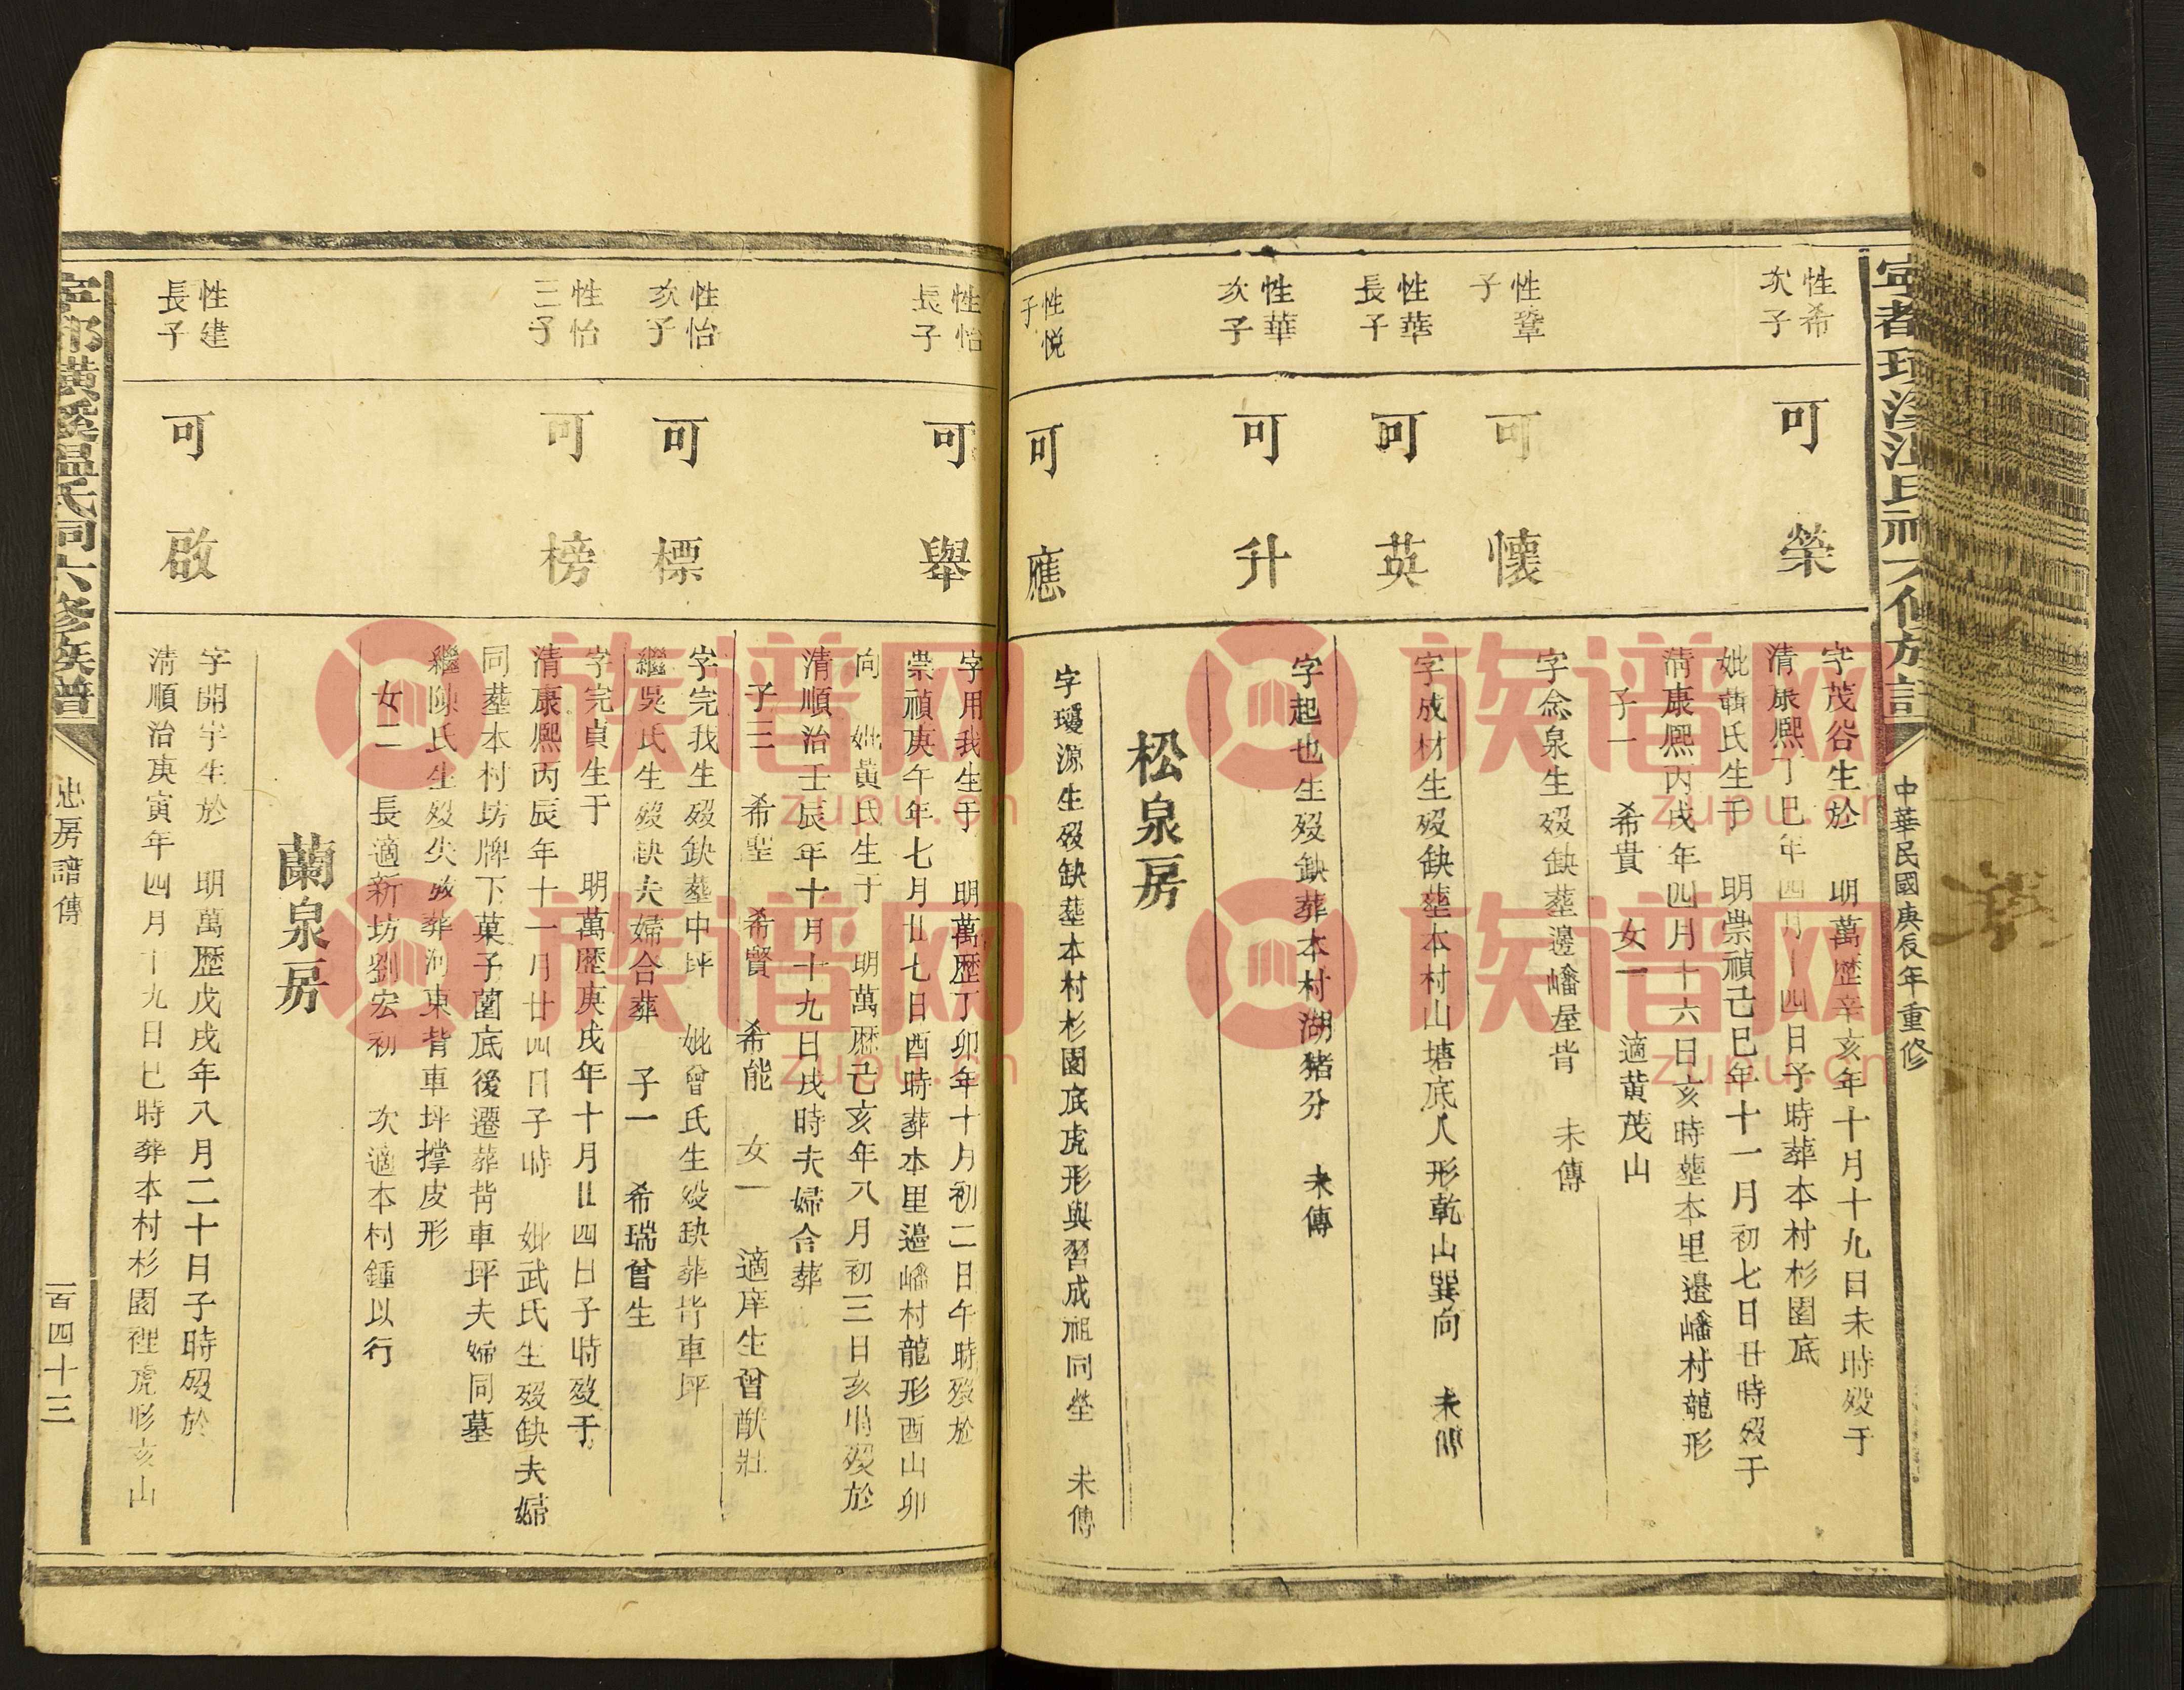 中華民國庚辰年重修
性希次子
可榮
字茂谷生於 明萬歷辛亥年十月十九日未時歿于
清康熙丁巳年四月十四日子時葬本村杉園底
妣蕭氏生于 明崇禎己巳年十一月初七日丑時歿于
清康熙丙戌年四月十六日亥時塟本里邉嶓村龍形
子一 希貴 女一 適黄茂山
性鞏子
可懷
字念泉生歿缺塟邊嶓屋背 未傳
性華長子
可英
字成材生歿缺塟本村山塘底人形乾山巽向 未傳
性華次子
可升
字起也生歿缺葬本村湖豬分 未傳
松泉房
性悦子
可應
字瓊源生歿缺塟本村杉園底虎形與習成祖同塋 未傳
性怡長子
可舉
字用我生于 明萬歷丁卯年十月初二日午時歿於
崇禎庚午年七月廿七日酉時葬本里邉嶓村龍形酉山卯
向 妣黃氏生于 明萬歷己亥年八月初三日亥時歿於
清順治壬辰年十月十九日戌時夫婦合葬
子三 希聖 希賢 希能 女一 適庠生曾猷壯
性怡次子
可標
字完我生歿缺塟中坪 妣曾氏生歿缺葬背車坪
繼吳氏生歿缺夫婦合葬 子一 希瑞曾生
性怡三子
可榜
字完貞生于 明萬歷庚戌年十月廿四日子時歿于
清康熙丙辰年十一月廿四日子時 妣武氏生歿缺夫婦
同塟本村坊牌下菓子園底後遷葬背車坪夫婦同墓
繼陳氏生歿失改葬河東背車坪撑皮形
女二 長適新坊劉宏初 次適本村鍾以行
蘭泉房
性建長子
可啟
字開宇生於 明萬歷戊戌年八月二十日子時歿於
清順治庚寅年四月十九日巳時葬本村杉園裡虎形亥山
溫氏祠六修族譜
忠房譜傳
一百四十三
族谱网
zupu.cn
族谱网
zupu.cn
族谱网
zupu.cn
族谱网
zupu.cn